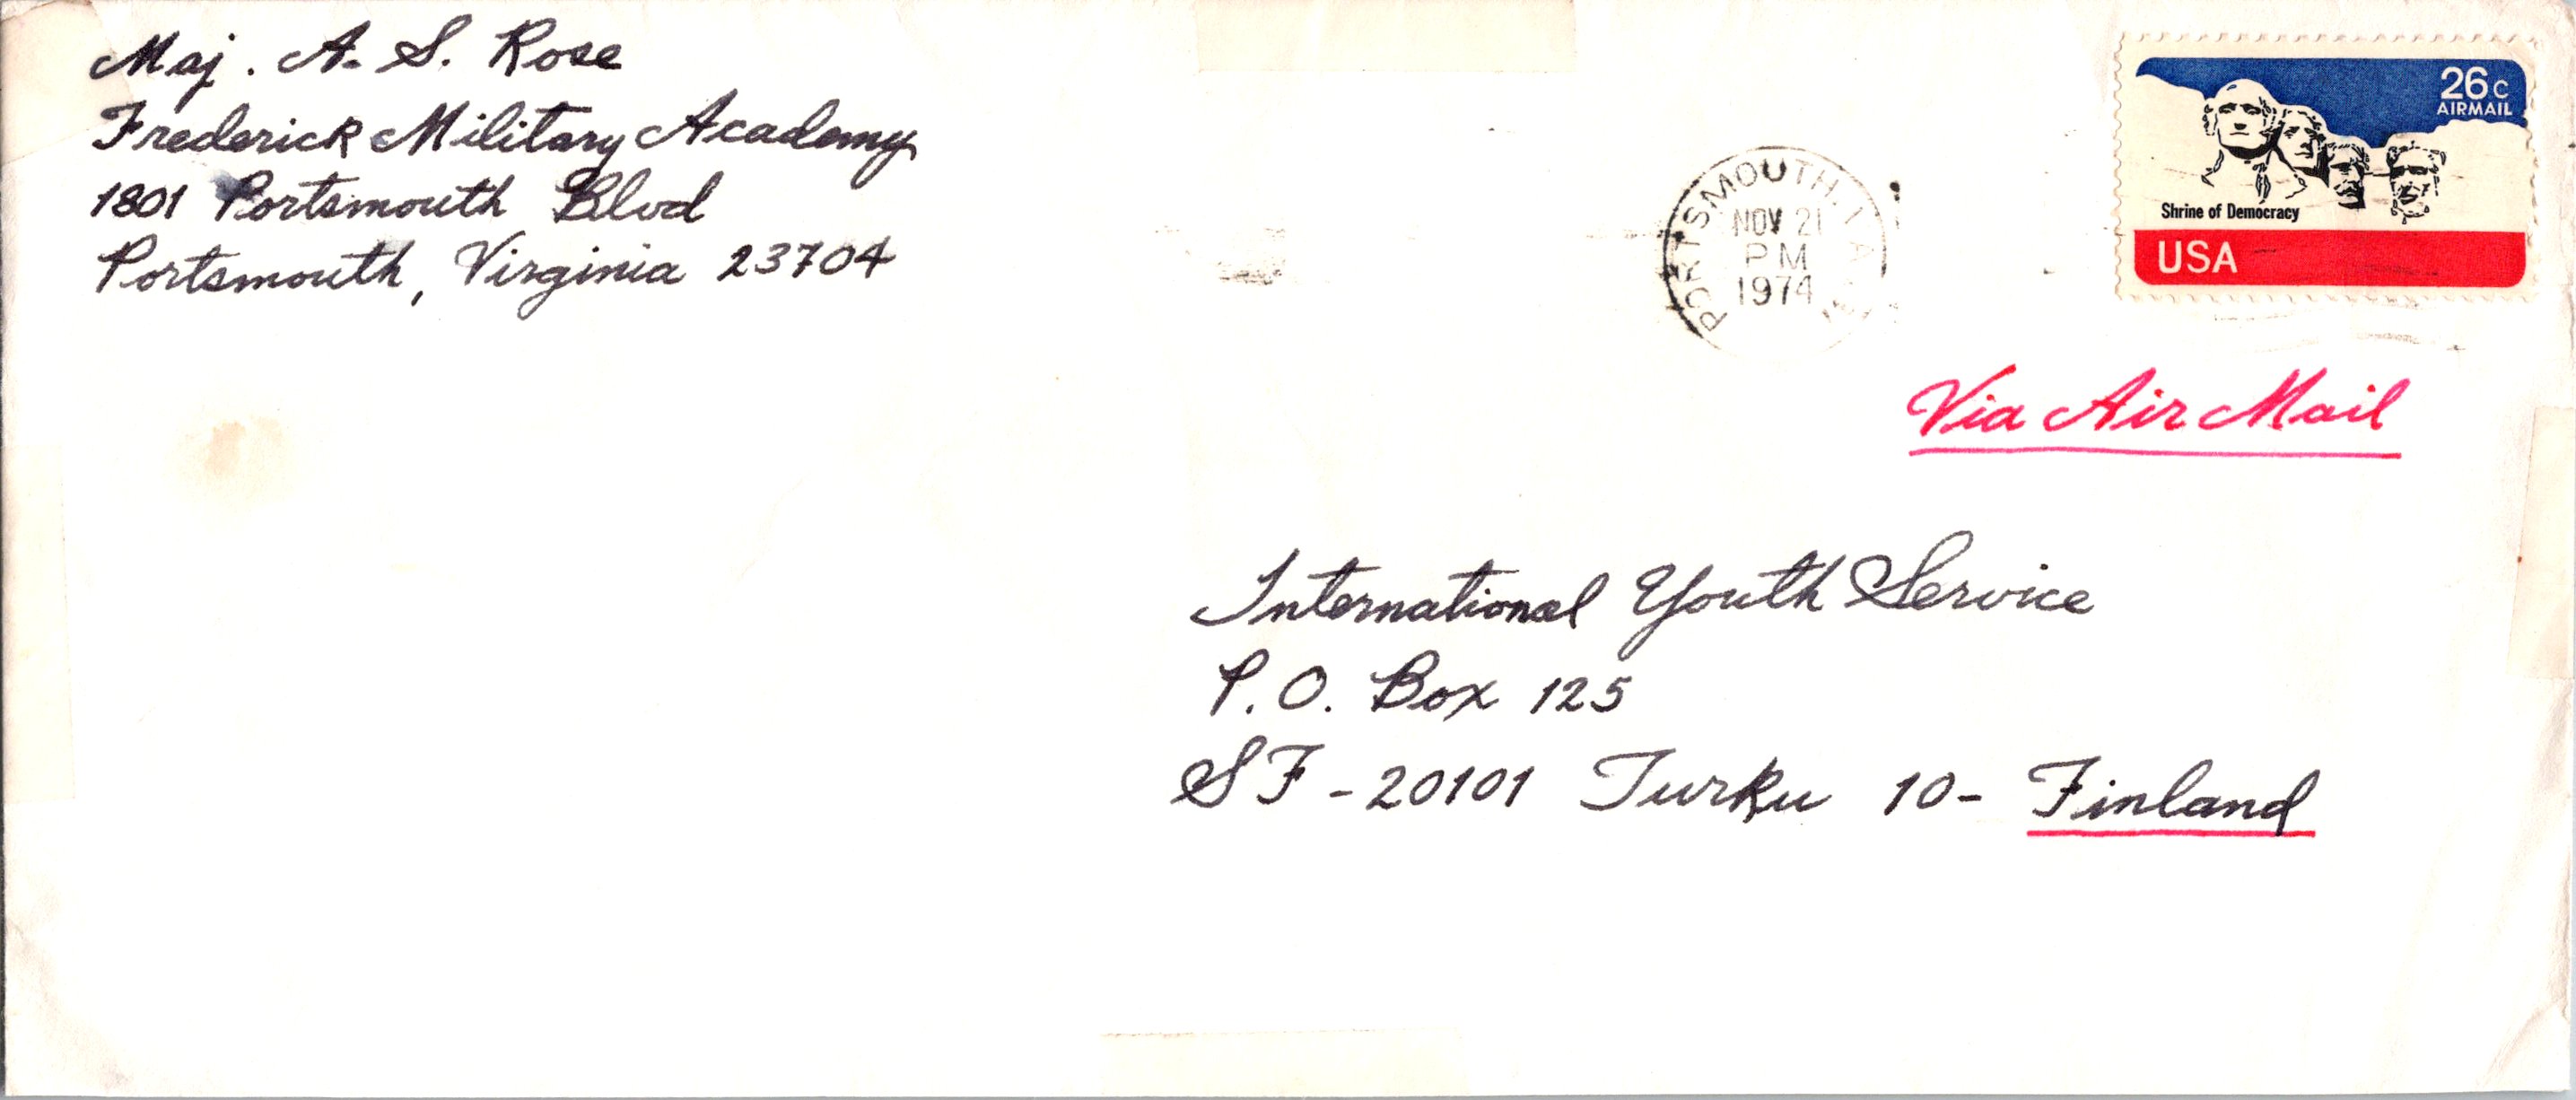 Maj. A. S. Rose
Frederick Military Academy
1801 Portsmouth Blvd
Portsmouth, Virginia 23704
PORTSMOUTH, VA
NOV 21
PM
1974
26c
AIRMAIL
Shrine of Democracy
USA
Via Air Mail
International Youth Service
P. O. Box 125
SF - 20101 Turku 10 - Finland